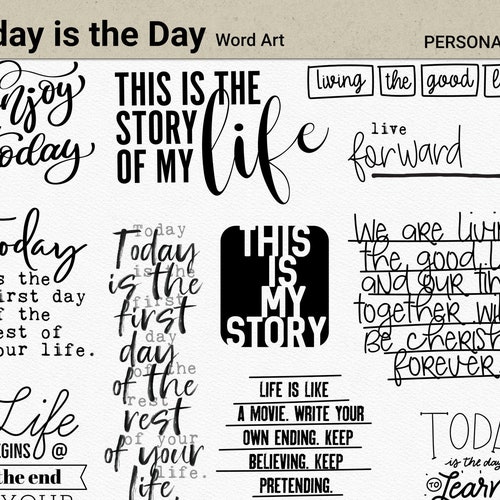 day is the Day Word Art
PERSONA
enjoy
today
THIS IS THE
STORY
OF MY
life
living the good
live
forward
today
is the
first day
of the
rest of
your life.
Today
is the
first
day
of the
rest
of your
life.
Today
is the
first
day
of the
rest
of your
life.
THIS
IS
MY
STORY
We are livin
the good l
and our tim
together wil
Be cherish
forever.
Life
BEGINS @
the end
YOUR
LIFE IS LIKE
A MOVIE. WRITE YOUR
OWN ENDING. KEEP
BELIEVING. KEEP
PRETENDING.
TODA
is the day
TO
Learn